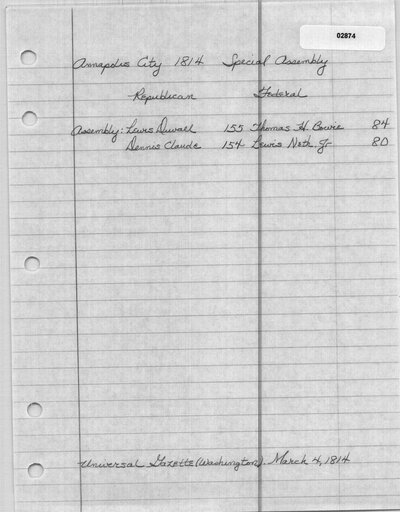 02874
Annapolis City 1814 Special Assembly
Republican Federal
Assembly: Lewis Duvall 155 Thomas H. Bowie 84
Dennis Claude 154 Lewis Neth, Jr 80
Universal Gazette (Washington). March 4, 1814